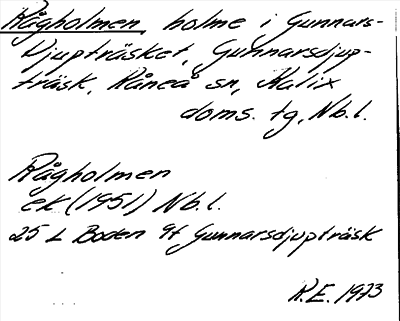 Rågholmen, holme i Gunnars-
Djupträsket, Gunnarsdjup-
träsk, Råneå sn, Kalix
doms. tg, Nb. l.
Rågholmen
ek (1951) Nb. l.
25 L Boden 9f Gunnarsdjupträsk
R.E. 1973